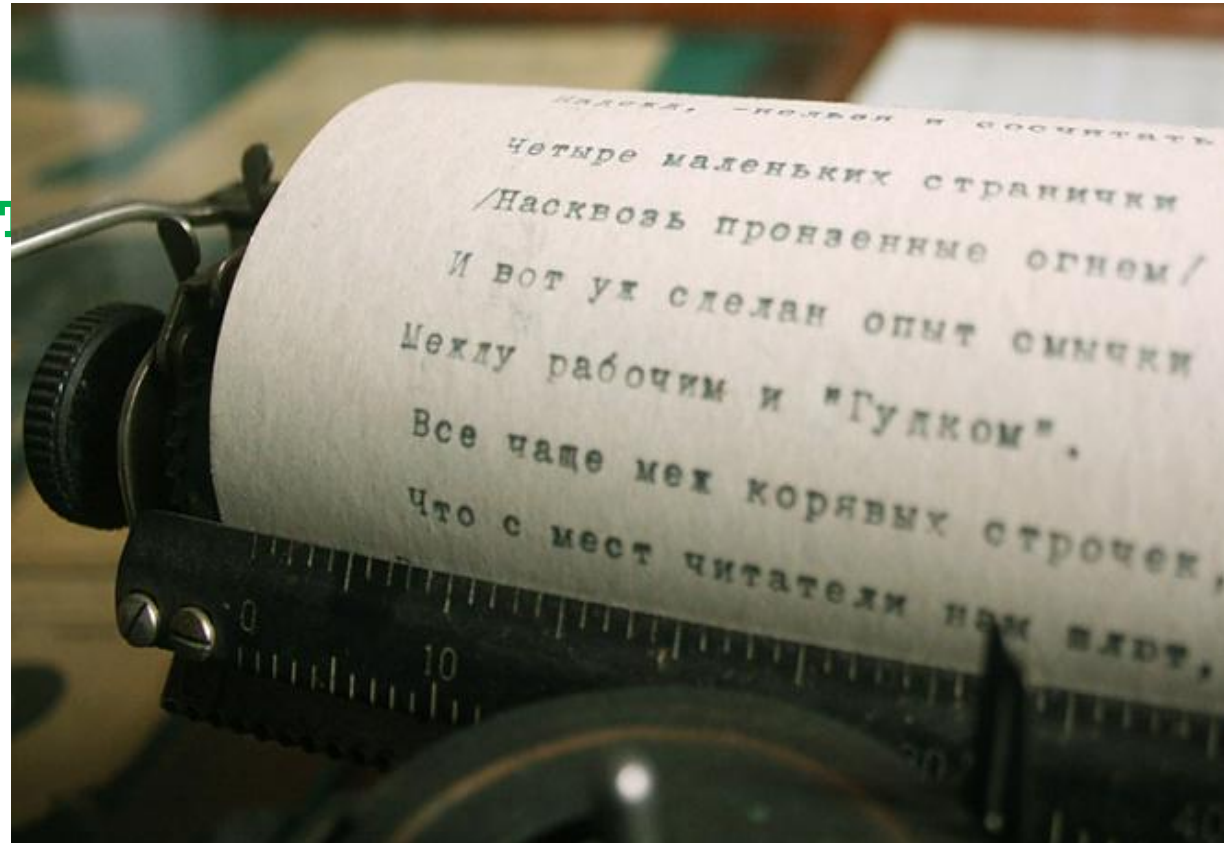 нельзя и сосчитать
Четыре маленьких странички
/Насквозь пронзенные огнем/
И вот уж сделан опыт смычки
Между рабочим и "Гудком".
Все чаще меж корявых строчек,
Что с мест читатели нам шлют,
0
10
20
40